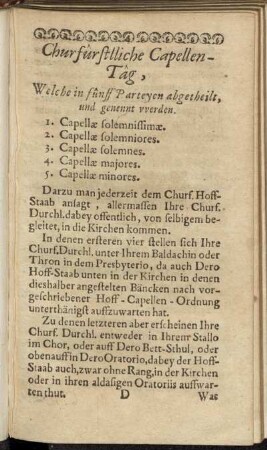 Churfürstlliche Capellen-
Täg,
Welche in fünff Parteyen abgetheilt,
und genennt vverden.
1. Capellæ solemnissimæ.
2. Capellæ solemniores.
3. Capellæ solemnes.
4. Capellæ majores.
5. Capellæ minores.
Darzu man jederzeit dem Churf. Hoff-
Staab ansagt, allermassen Ihre Churf.
Durchl. dabey offentlich, von selbigem be-
gleitet, in die Kirchen kommen.
In denen ersteren vier stellen sich Ihre
Churf. Durchl. unter Ihrem Baldachin oder
Thron in dem Presbyterio, da auch Dero
Hoff-Staab unten in der Kirchen in denen
dieshalber angestelten Bäncken nach vor-
geschriebener Hoff-Capellen-Ordnung
unterthänigst auffzuwarten hat.
Zu denen letzteren aber erscheinen Ihre
Churf. Durchl. entweder in Ihrem Stallo
im Chor, oder auff Dero Bett-Sthul, oder
obenauff in Dero Oratorio, dabey der Hoff-
Staab auch, zwar ohne Rang, in der Kirchen
oder in ihren aldasigen Oratoriis auffwar-
ten thut. D Was